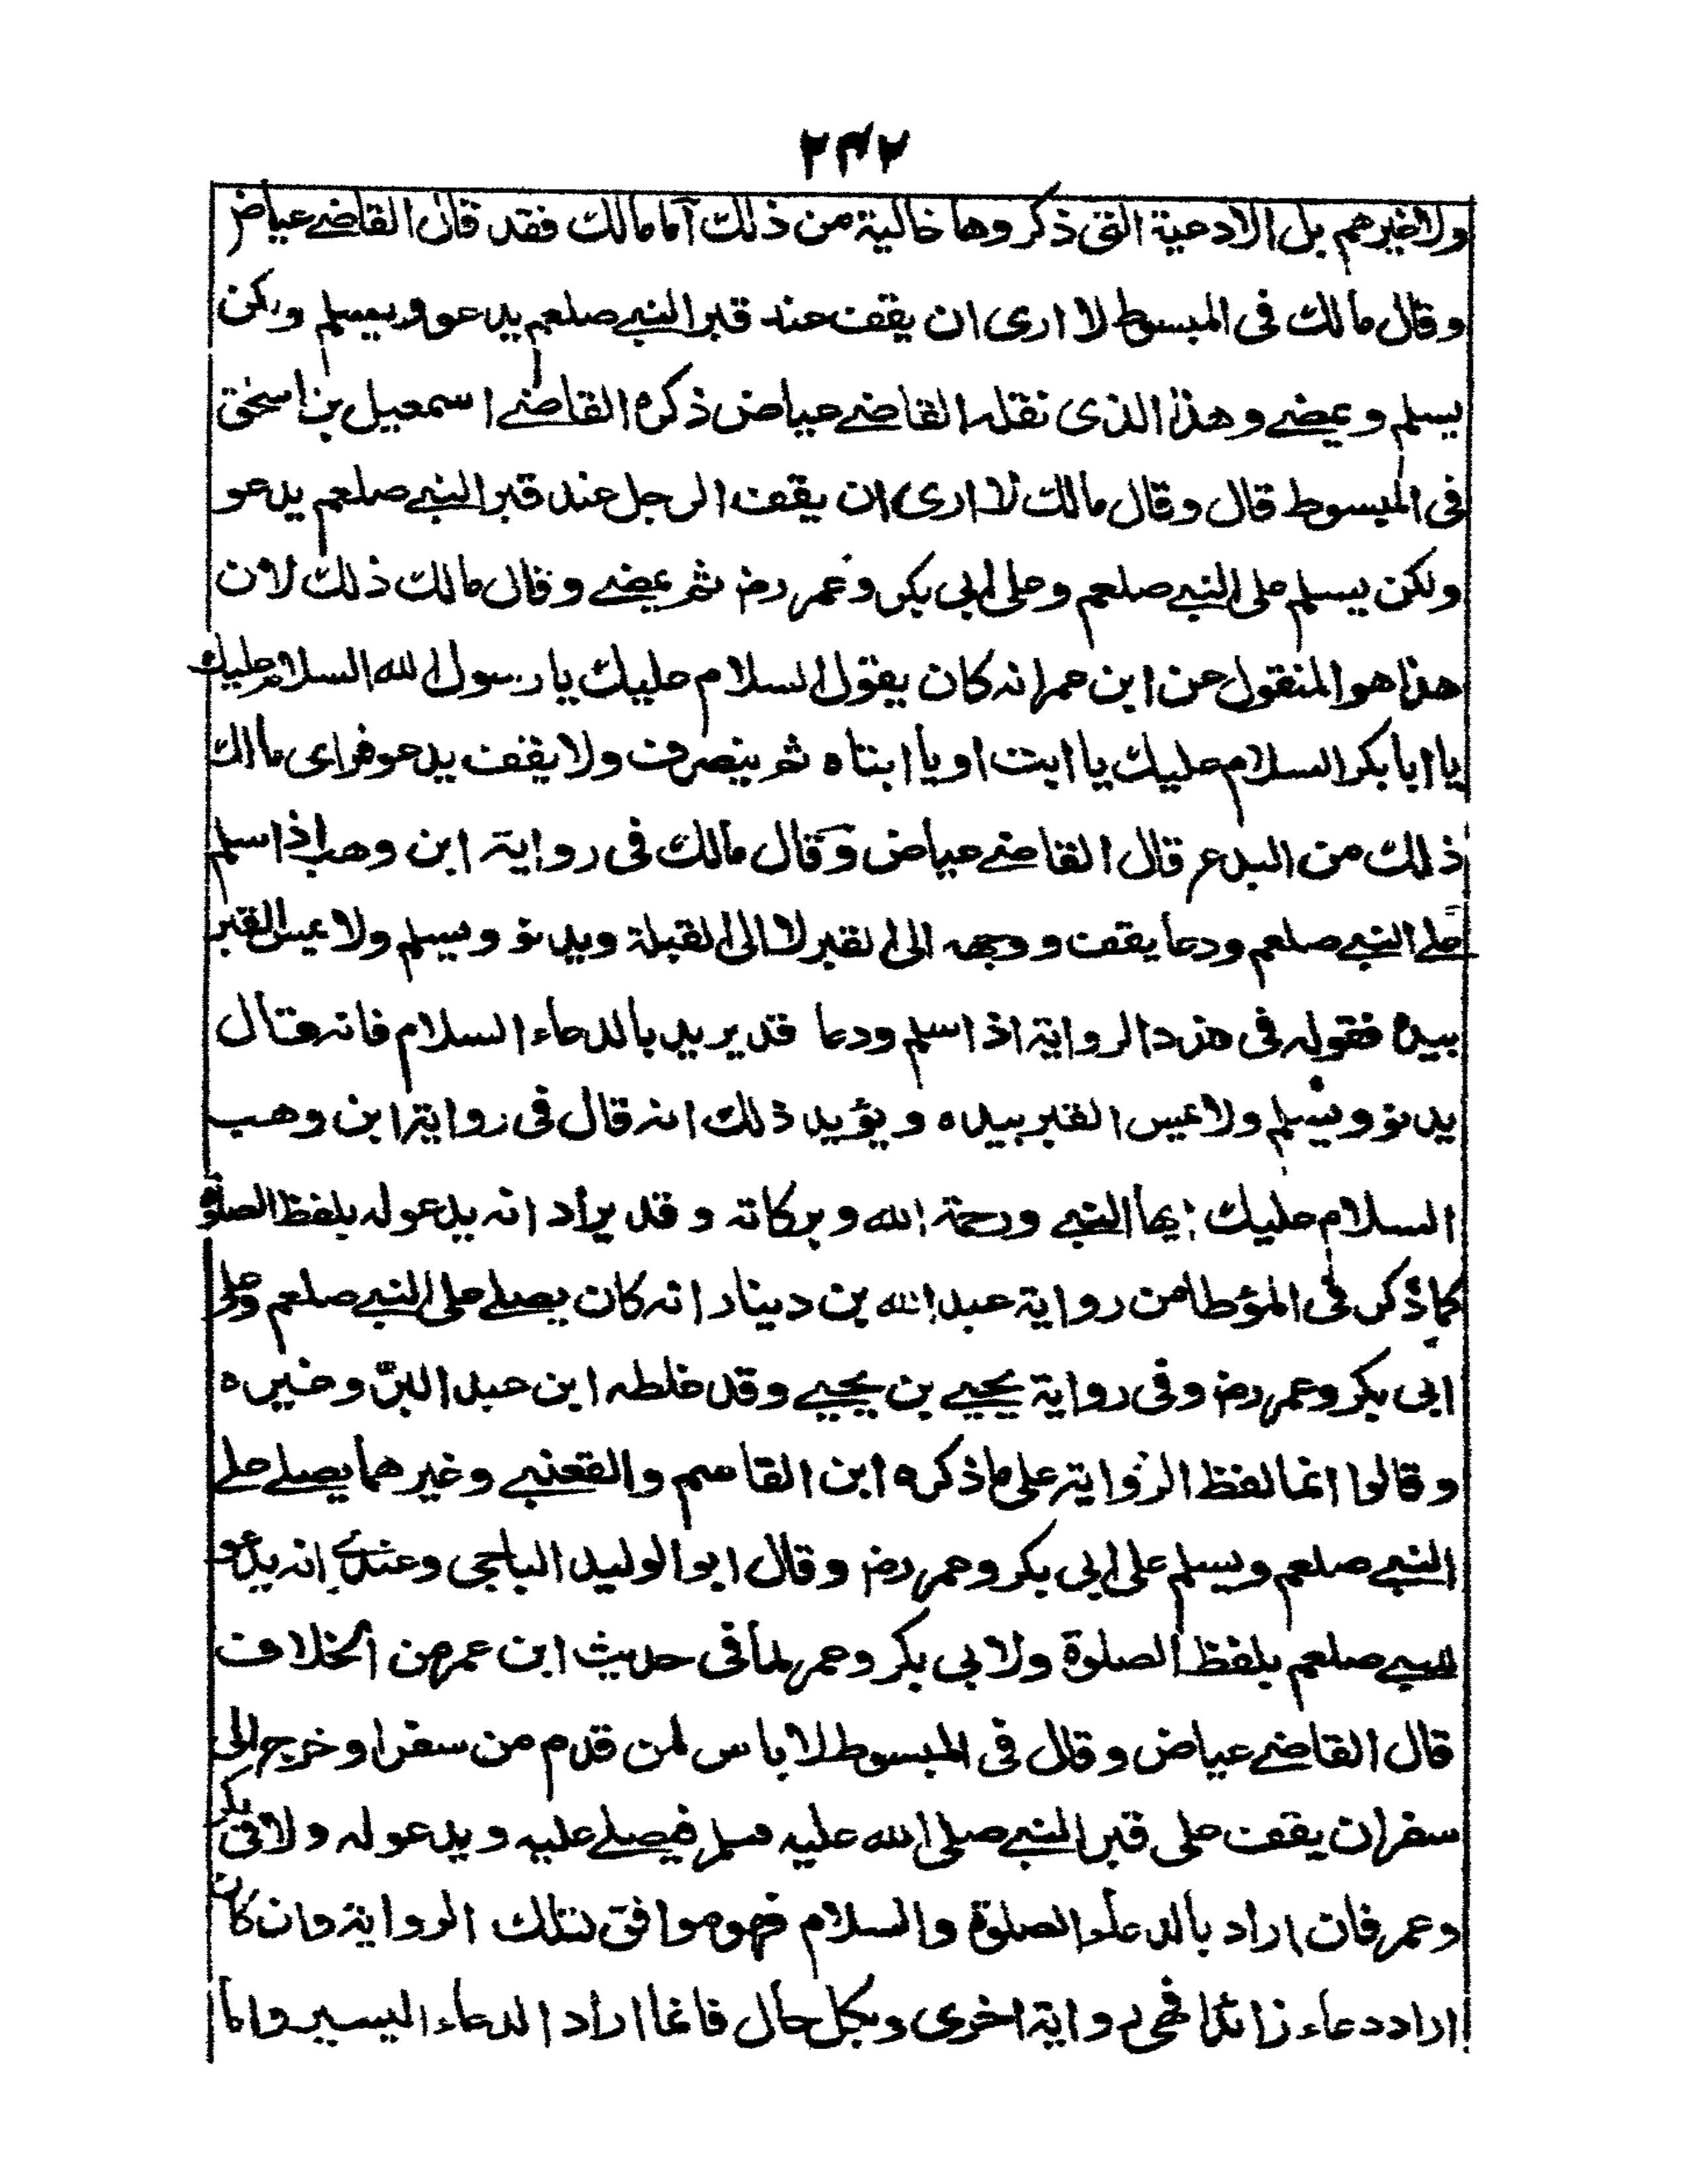 ٢٤٢
ولا غيرهم بل الادعية التى ذكروها خالية من ذلك اما مالك فقد قال القاضے عياض
وقال مالك فى المبسوط لا ارى ان يقف عند قبر النبے صلعم يدعو ويسلم ولكن
يسلم ويمضے وهذا الذى نقله القاضے عياض ذكره القاضے اسمعيل بن اسحٰق
فى المبسوط قال وقال مالك لا ارى ان يقف الرجل عند قبر النبے صلعم يدعو
ولكن يسلم على النبے صلعم وعلى ابى بكر وعمر رضـ ثم يمضے وقال مالك ذلك لان
هذا هو المنقول عن ابن عمر انه كان يقول السلام عليك يا رسول الله السلام عليك
يا ابا بكر السلام عليك يا ابت او يا ابتاه ثم ينصرف ولا يقف يدعو فراى مالك
ذلك من البدع قال القاضے عياض وقال مالك فى رواية ابن وهب اذا سلم
علے النبے صلعم ودعا يقف ووجهه الى القبر لا الى القبلة ويدنو ويسلم ولا يمس القبر
بيده فقوله فى هذه الرواية اذا سلم ودعا قد يريد بالدعاء السلام فانه قال
يدنو ويسلم ولا يمس القبر بيده ويؤيد ذلك انه قال فى رواية ابن وهب
السلام عليك ايها النبے ورحمة الله وبركاته وقد يراد انه يدعو له بلفظ الصلوة
كما ذكر فى المؤطا من رواية عبد الله بن دينار انه كان يصلے على النبے صلعم وعلى
ابى بكر وعمر رضـ وفى رواية يحيے بن يحيے وقد غلطه ابن عبد البرّ وغيره
وقالوا انما لفظ الرواية على ما ذكره ابن القاسم والقعنبے وغيرهما يصلے علے
النبے صلعم ويسلم على ابى بكر وعمر رضـ وقال ابو الوليد الباجى وعندے انه يدعو
للنبے صلعم بلفظ الصلوة ولابى بكر وعمر لما فى حديث ابن عمر من الخلاف
قال القاضے عياض وقال فى المبسوط لا باس لمن قدم من سفر او خرج الى
سفر ان يقف على قبر النبے صلى الله عليه وسلم فيصلے عليه ويدعو له ولابى بكر
وعمر فان اراد بالدعاء الصلوة والسلام فهو موافق لتلك الرواية وان كان
اراد دعاء زائدا فهى رواية اخرى وبكل حال فانما اراد الدعاء اليسير واما